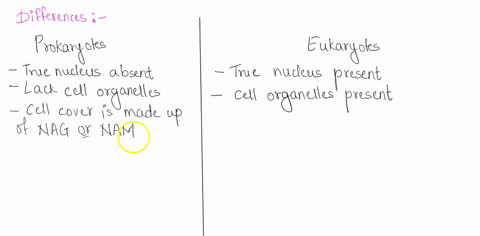 Differences:-
Prokaryotes
- True nucleus absent
- Lack cell organelles
- Cell cover is made up
of NAG or NAM
Eukaryotes
- True nucleus present
- Cell organelles present